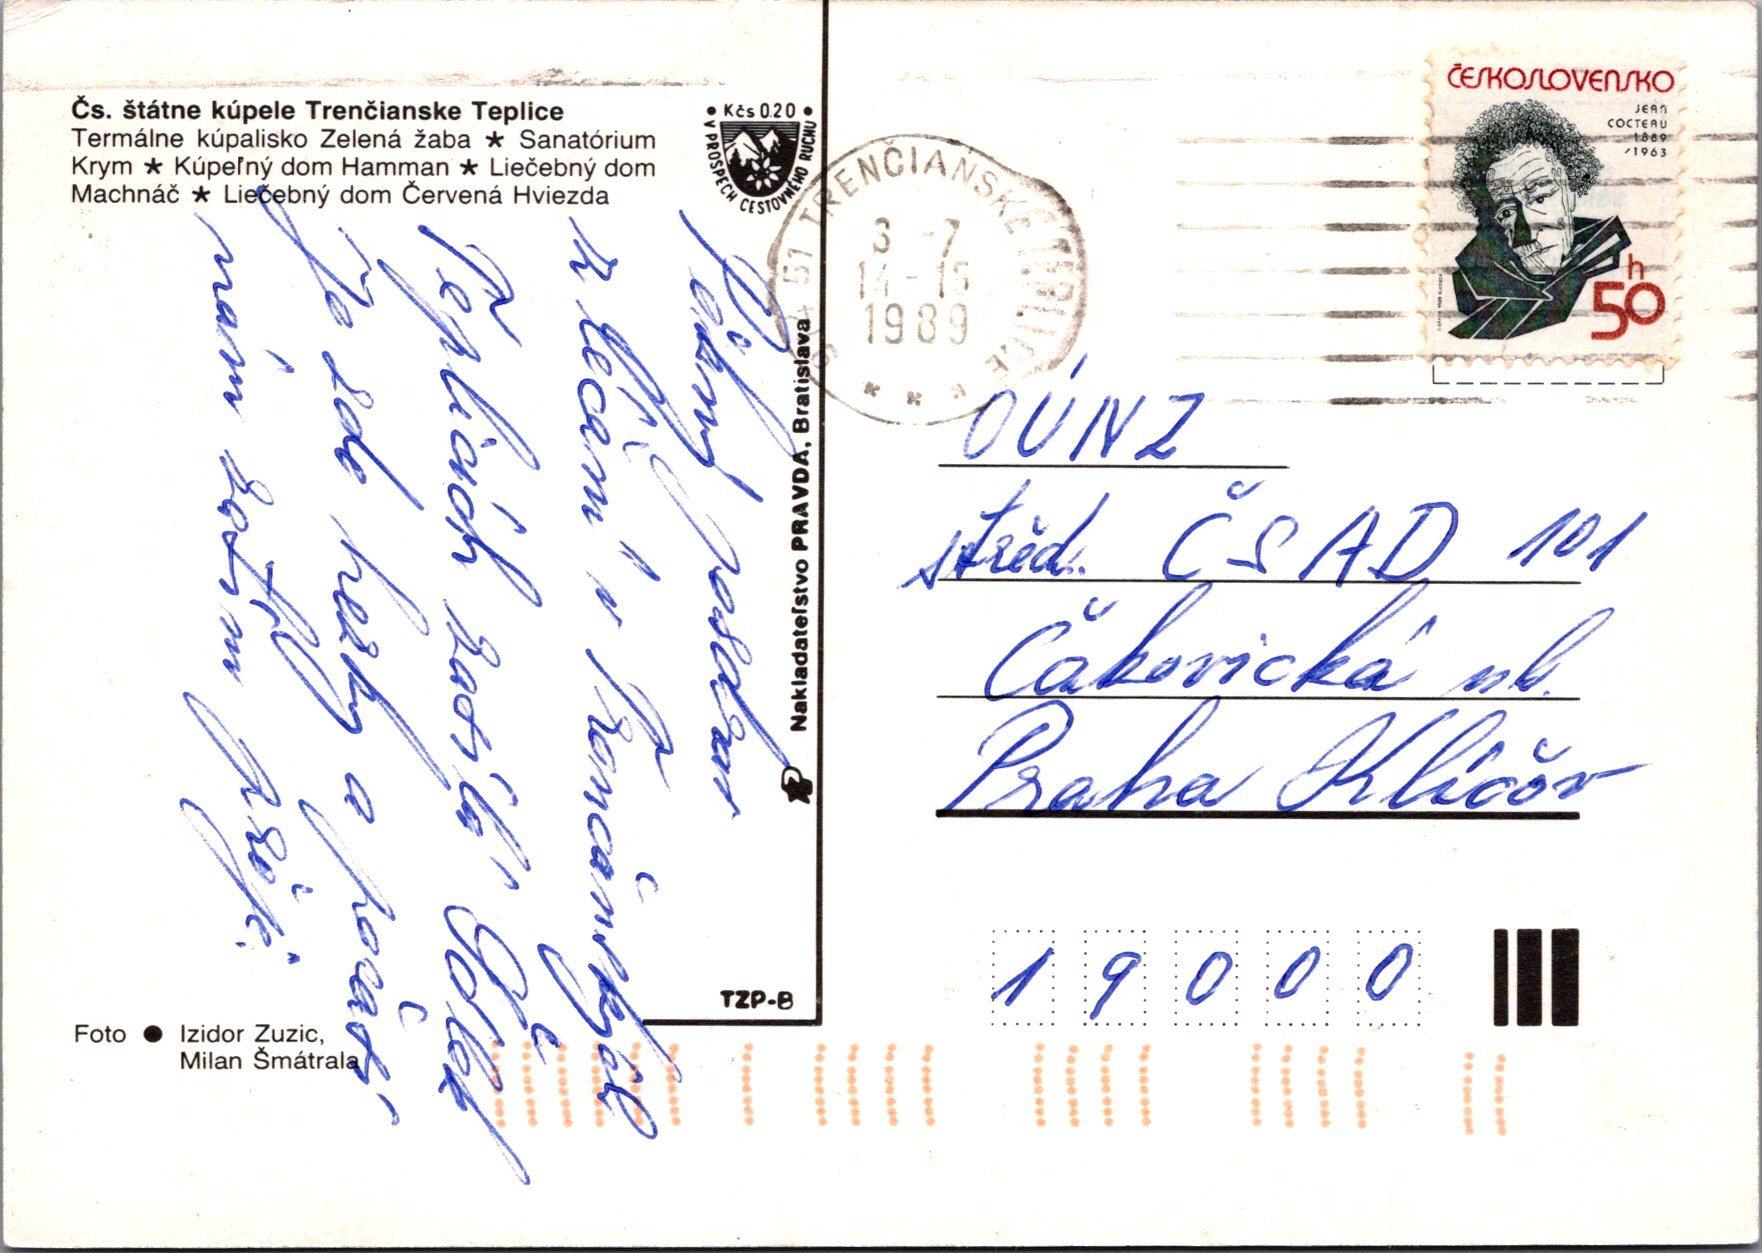 Čs. štátne kúpele Trenčianske Teplice
Termálne kúpalisko Zelená žaba ★ Sanatórium
Krym ★ Kúpeľný dom Hamman ★ Liečebný dom
Machnáč ★ Liečebný dom Červená Hviezda
• Kčs 0.20 •
V PROSPECH CESTOVNÉHO RUCHU
TRENČIANSKE TEPLICE
3 -7
14-15
1989
ČESKOSLOVENSKO
JEAN
COCTEAU
1889
/1963
50 h
Pěkný pozdrav
z léčení v Trenčanských
Teplicích
Je zde hezky a počasí
nám zatím přeje.
Nakladateľstvo PRAVDA, Bratislava
TZP-B
Foto ● Izidor Zuzic,
Milan Šmátrala
OÚNZ
střed. ČSAD 101
Čakovická ul.
Praha Klíčov
19000